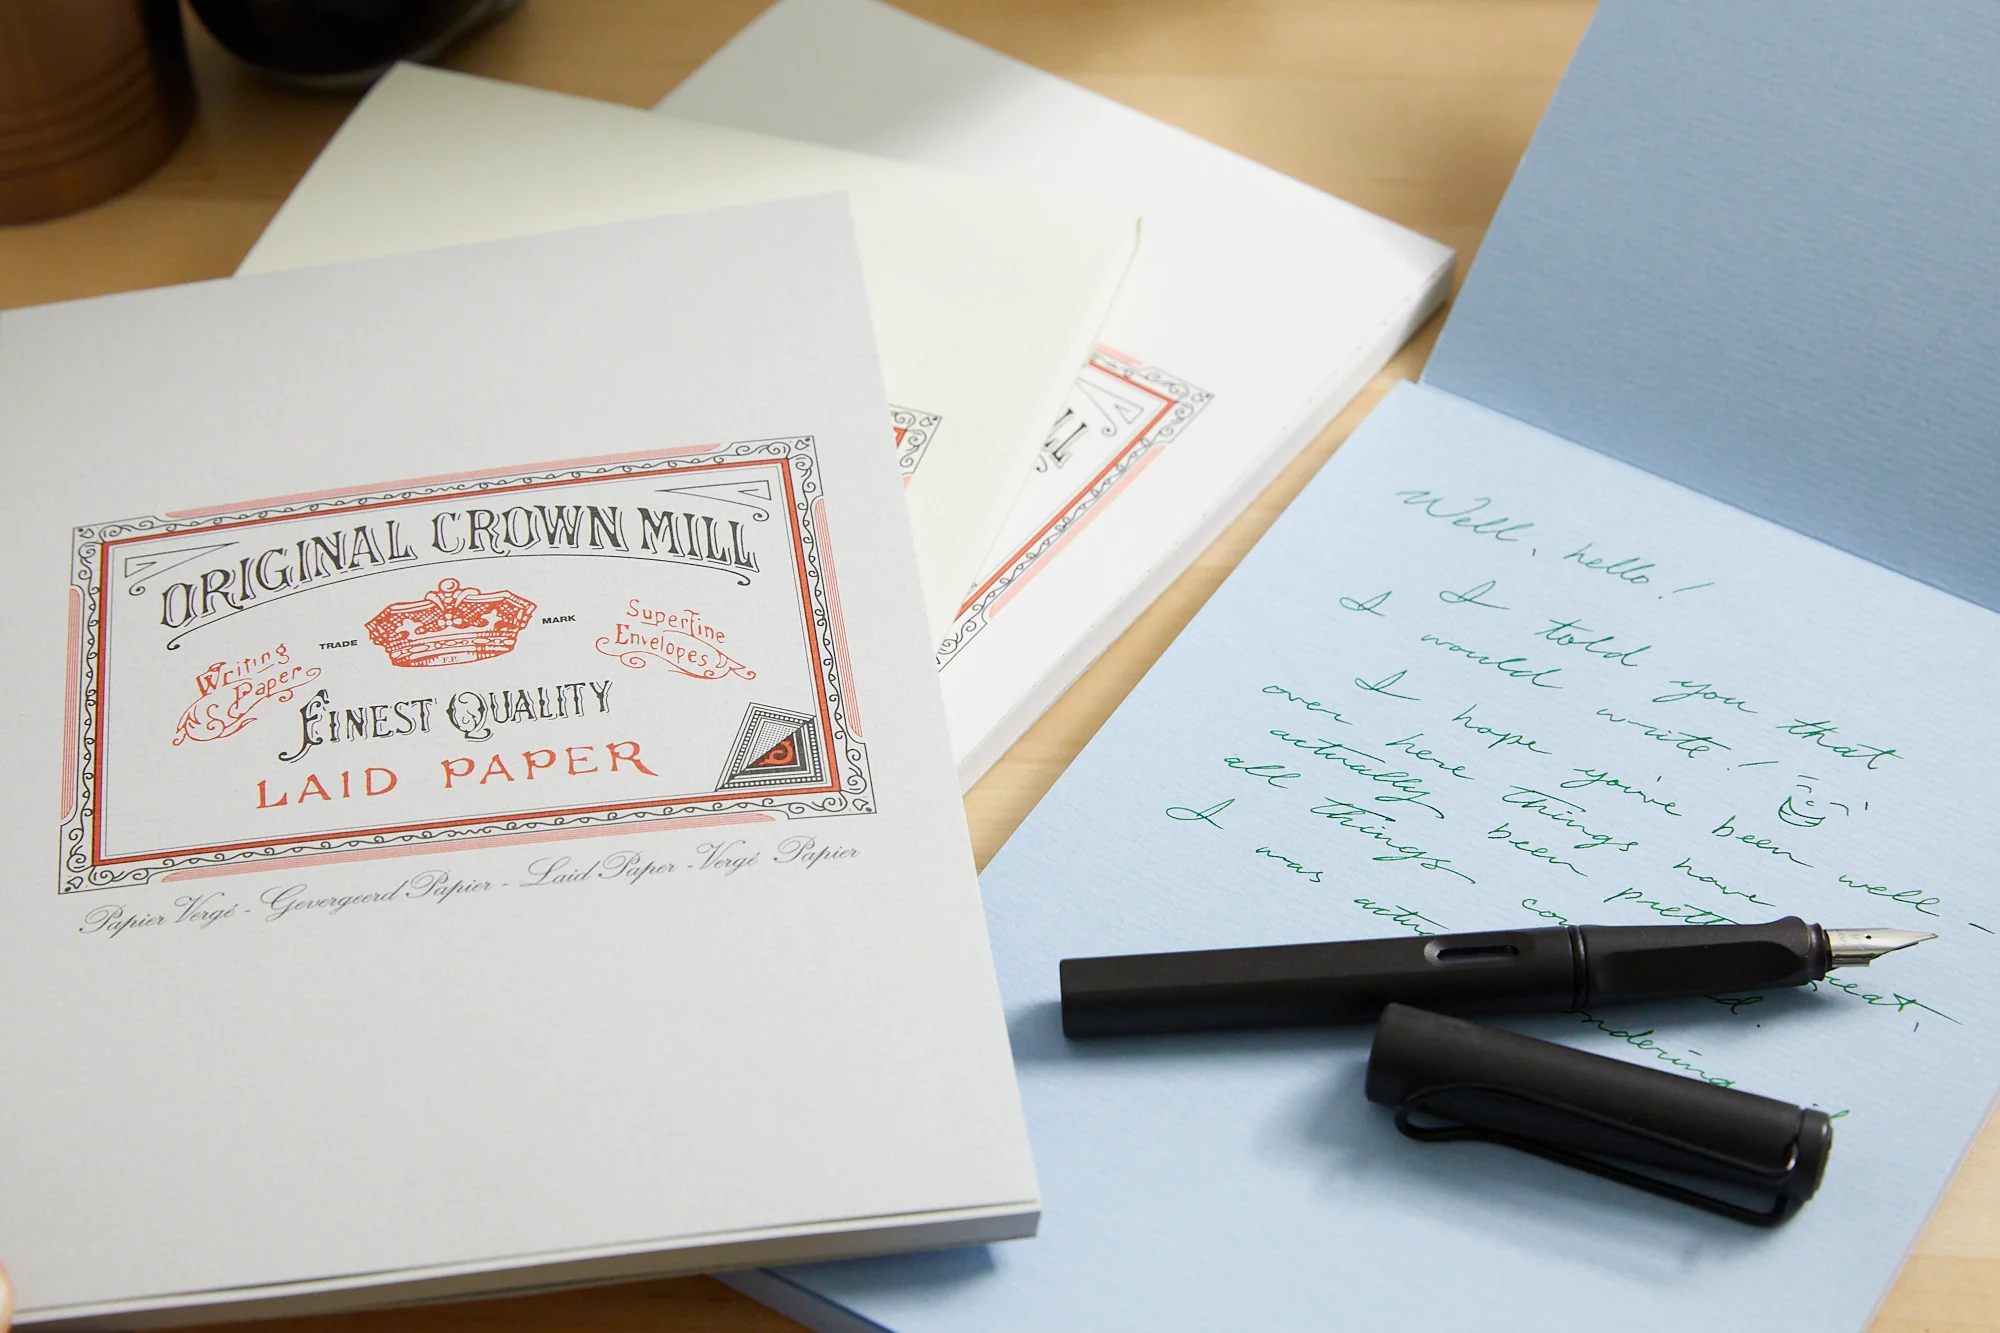 ORIGINAL CROWN MILL
TRADE
MARK
F.P.
Writing
Paper
Superfine
Envelopes
FINEST QUALITY
LAID PAPER
Papier Vergé - Gevergeerd Papier - Laid Paper - Vergé Papier
Well, hello!
I told you that
I would write!
I hope you've been well -
over here things have
actually been pretty
all things
I was